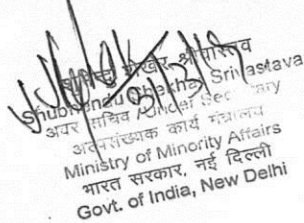 शेखर श्रीवास्तव
Shubhendu Shekhar Srivastava
अवर सचिव /Under Sec
अल्पसंख्यक कार्य मंत्रालय
Ministry of Minority Affairs
भारत सरकार, नई दिल्ली
Govt. of India, New Delhi